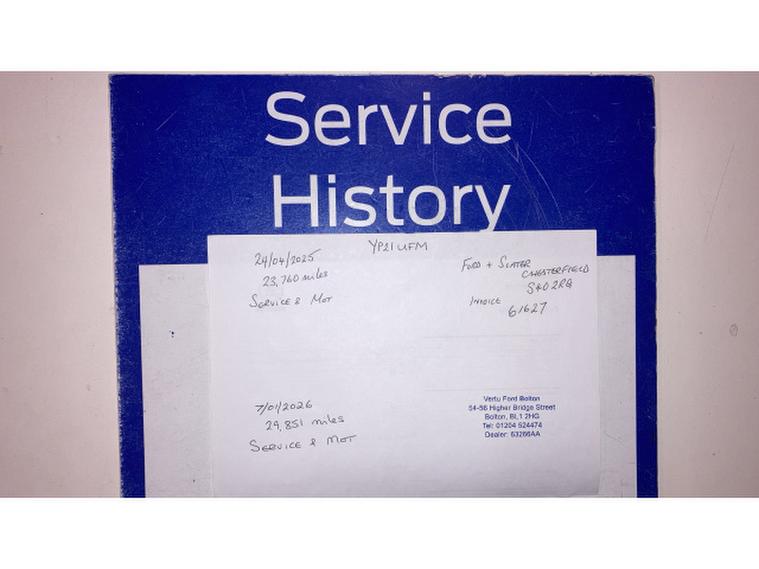 Service
History
YP21 UFM
24/04/2025
23,760 miles
SERVICE & MOT
FORD + SLATER
CHESTERFIELD
S40 2RQ
INVOICE
61627
7/01/2026
29,851 miles
SERVICE & MOT
Vertu Ford Bolton
54-56 Higher Bridge Street
Bolton, BL1 2HG
Tel: 01204 524474
Dealer: 63266AA